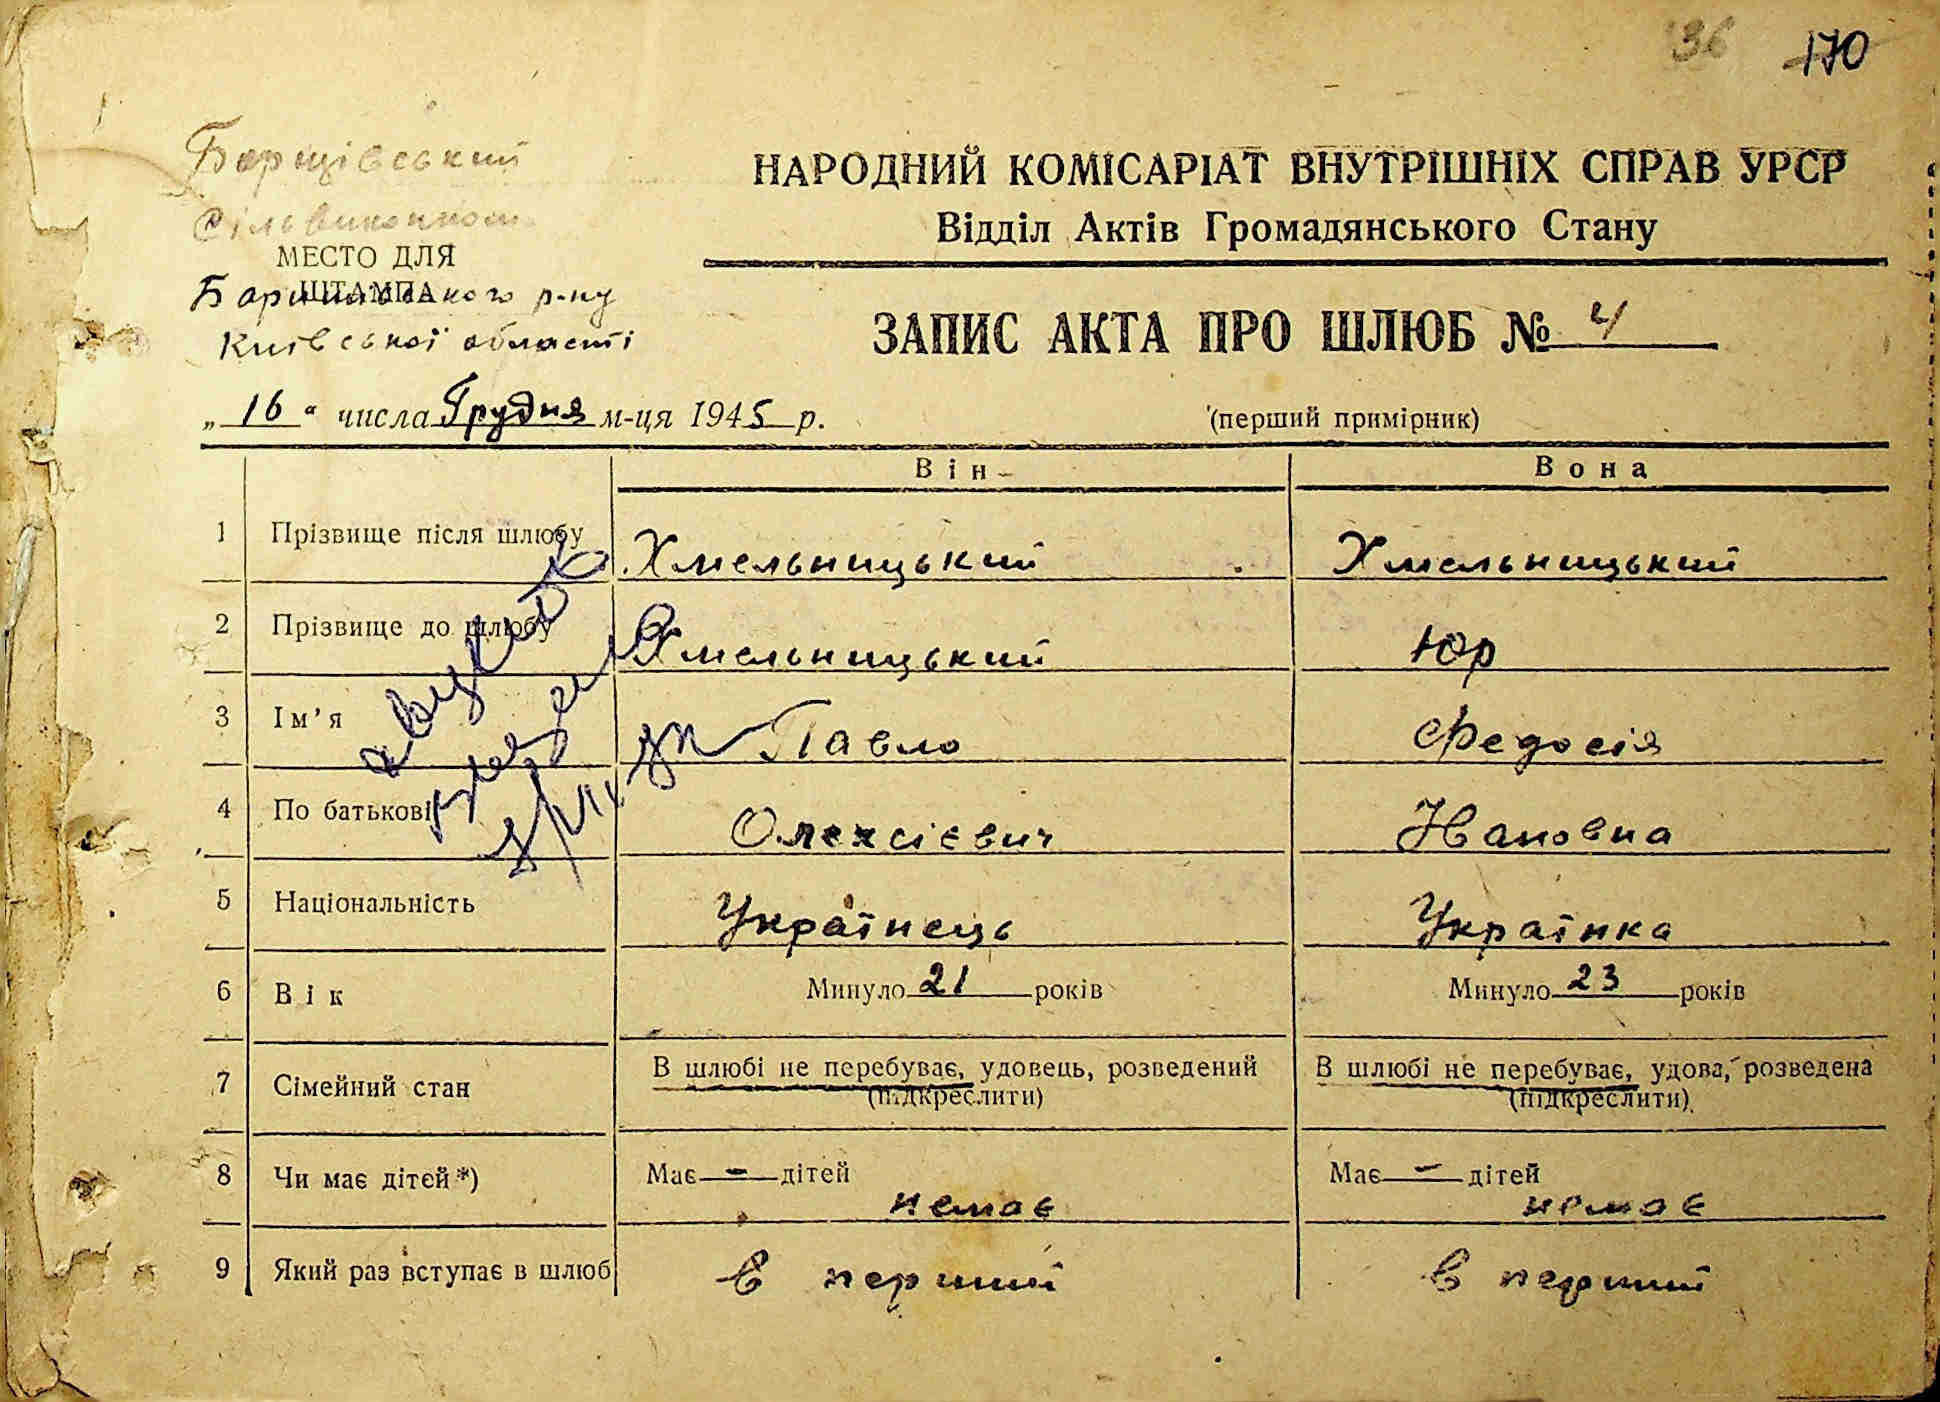 36 170
Борщівський
Сільвиконком
МЕСТО ДЛЯ
ШТАМПА
Баришівського р-ну
Київської області
НАРОДНИЙ КОМІСАРІАТ ВНУТРІШНІХ СПРАВ УРСР
Відділ Актів Громадянського Стану
ЗАПИС АКТА ПРО ШЛЮБ № 4
„ 16 “ числа Грудня м-ця 1945 р.
(перший примірник)
Він
Вона
1 Прізвище після шлюбу Хмельницький Хмельницький
2 Прізвище до шлюбу Хмельницький Юр
3 Ім’я Павло Федосія
4 По батькові Олексієвич
5 Національність Українець Українка
6 Вік Минуло 21 років Минуло 23 років
7 Сімейний стан В шлюбі не перебуває, удовець, розведений В шлюбі не перебуває, удова, розведена
(підкреслити) (підкреслити)
8 Чи має дітей *) Має — дітей Має — дітей
немає немає
9 Який раз вступає в шлюб в перший в перший